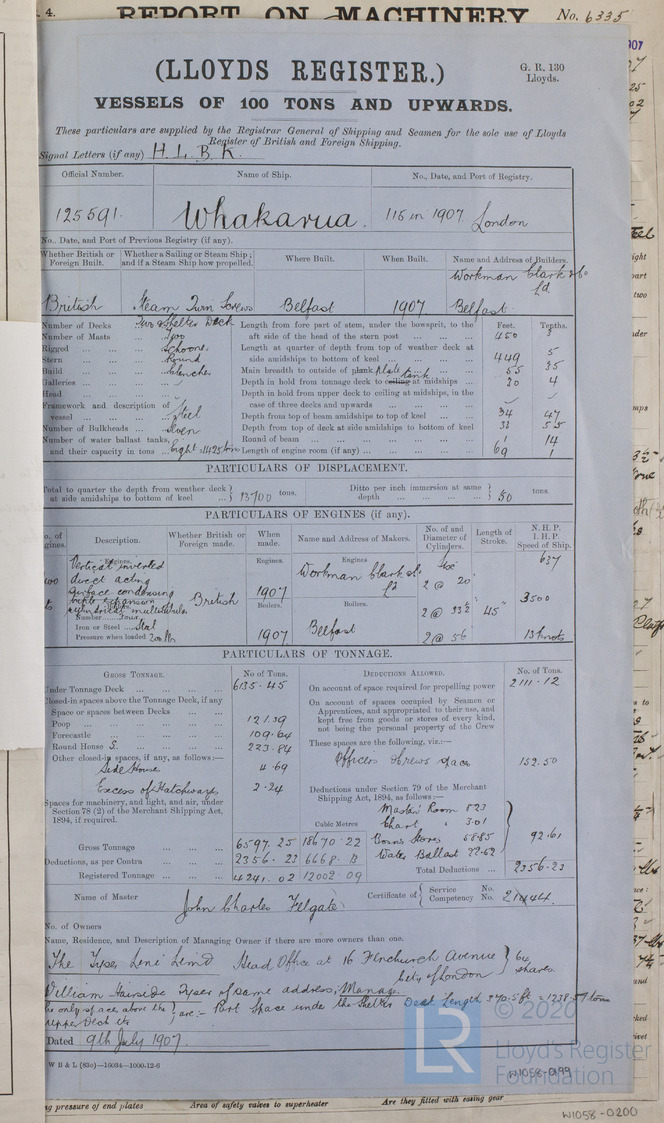 4. REPORT ON MACHINERY No. 6335
(LLOYDS REGISTER.)
G. R. 130
Lloyds.
VESSELS OF 100 TONS AND UPWARDS.
These particulars are supplied by the Registrar General of Shipping and Seamen for the sole use of Lloyds
Register of British and Foreign Shipping.
Signal Letters (if any) H. L. B. K.
Official Number. Name of Ship. No., Date, and Port of Registry.
125591. Whakarua. 116 in 1907 London
No., Date, and Port of Previous Registry (if any).
Whether British or Foreign Built. Whether a Sailing or Steam Ship; and if a Steam Ship how propelled. Where Built. When Built. Name and Address of Builders.
British Steam Twin Screws Belfast 1907 Workman Clark & Co Ld. Belfast
Number of Decks Two & Shelter Deck
Number of Masts Two
Rigged Schooner
Stern Round
Build Clencher
Galleries
Head
Framework and description of vessel Steel
Number of Bulkheads Seven
Number of water ballast tanks, and their capacity in tons Eight 1425 tons
Feet. Tenths.
Length from fore part of stem, under the bowsprit, to the aft side of the head of the stern post 450 3
Length at quarter of depth from top of weather deck at side amidships to bottom of keel 449 5
Main breadth to outside of plank plate 55 35
Depth in hold from tonnage deck to ceiling tank at midships 20 4
Depth in hold from upper deck to ceiling at midships, in the case of three decks and upwards
Depth from top of beam amidships to top of keel 34 47
Depth from top of deck at side amidships to bottom of keel 33 55
Round of beam 1 14
Length of engine room (if any) 69 1
PARTICULARS OF DISPLACEMENT.
Total to quarter the depth from weather deck at side amidships to bottom of keel 13700 tons. Ditto per inch immersion at same depth 50 tons.
PARTICULARS OF ENGINES (if any).
Description. Whether British or Foreign made. When made. Name and Address of Makers. No. of and Diameter of Cylinders. Length of Stroke. N. H. P. I. H. P. Speed of Ship.
Engines. Engines. Engines
Vertical inverted
direct acting
surface condensing
triple expansion
British 1907 Workman Clark & Co Ld
2 @ 20" 637
Boilers. Boilers.
cylindrical multitubular
2 @ 33½" 45" 3500
Number Four
Iron or Steel Steel
Pressure when loaded 200 lbs
1907 Belfast 2 @ 56 13 knots
PARTICULARS OF TONNAGE.
GROSS TONNAGE. No of Tons. DEDUCTIONS ALLOWED. No. of Tons.
Under Tonnage Deck 6135.45
Closed-in spaces above the Tonnage Deck, if any
Space or spaces between Decks
Poop 121.39
Forecastle 109.64
Round House S. 223.84
Other closed-in spaces, if any, as follows:—
Side House 4.69
Excess of Hatchways 2.24
Spaces for machinery, and light, and air, under Section 78 (2) of the Merchant Shipping Act, 1894, if required.
Cubic Metres
Gross Tonnage 6597.25 18670.22
Deductions, as per Contra 2356.23 6668.13
Registered Tonnage 4241.02 12002.09
On account of space required for propelling power 2111.12
On account of spaces occupied by Seamen or Apprentices, and appropriated to their use, and kept free from goods or stores of every kind, not being the personal property of the Crew
These spaces are the following, viz.:—
Officers & Crews space 152.50
Deductions under Section 79 of the Merchant Shipping Act, 1894, as follows:—
Master Room 8.23
Chart " 3.01
Bosns Stores 58.85
Water Ballast 22.62
92.61
Total Deductions 2356.23
Name of Master John Charles Felgate Certificate of Service No. Competency No. 21444.
No. of Owners
Name, Residence, and Description of Managing Owner if there are more owners than one.
The Tyser Line Limtd Head Office at 16 Fenchurch Avenue City of London 64 shares
William Hairside Tyser of same address, Manager
The only spaces above the upper Deck etc are:- Part Space under the Shelter Deck Length 370.5 ft = 1238.57 tons
Dated 9th July 1907.
W B & L (83o)—16034—1000-12-6
© 2020
LR
Lloyd's Register
Foundation
W1058-0199
ng pressure of end plates Area of safety valves to superheater Are they fitted with easing gear
W1058-0200